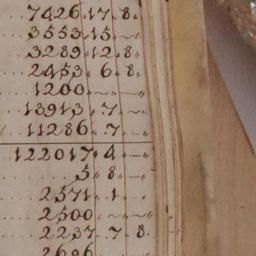 7426 " 17 " 8 "
3553 " 15 " ~ "
3289 " 12 " 8 "
2453 " 6 " 8 "
1200 " ~ " ~ "
13913 " 7 " ~ "
11286 " 7 " ~ "
122017 " 4 " ~ "
5 " 8 " ~ "
2571 " 1 " ~ "
2500 " ~ " ~ "
2237 " 7 " 8
2696